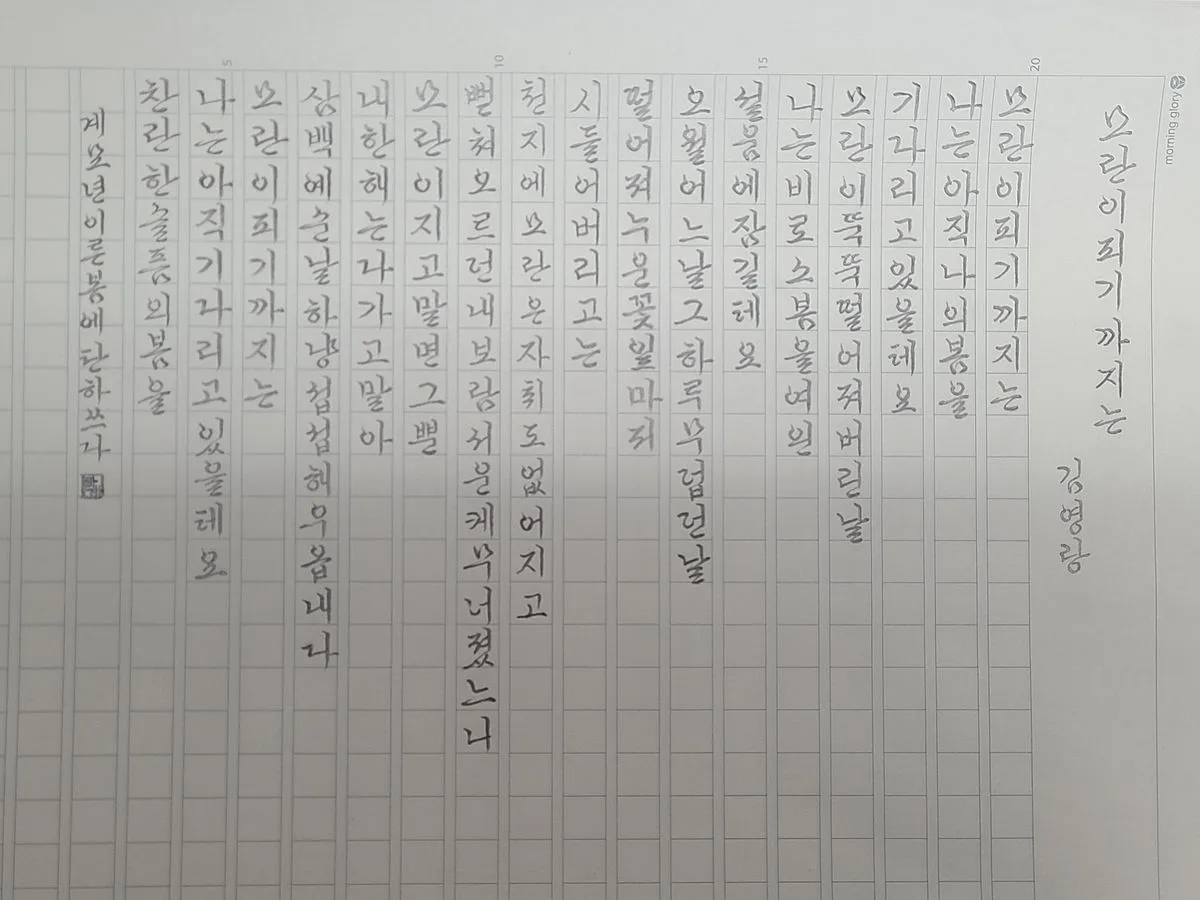 모란이피기까지는
김영랑
모란이피기까지는
나는아직나의봄을
기다리고있을테요
모란이뚝뚝떨어져버린날
나는비로소봄을여읜
설움에잠길테요
오월어느날그하루무덥던날
떨어져누운꽃잎마저
시들어버리고는
천지에모란은자취도없어지고
뻗쳐오르던내보람서운케무너졌느니
모란이지고말면그뿐
내한해는다가고말아
삼백예순날하냥섭섭해우옵내다
모란이피기까지는
나는아직기다리고있을테요
찬란한슬픔의봄을
계묘년이른봄에단하쓰다
morning glory
20
15
10
5